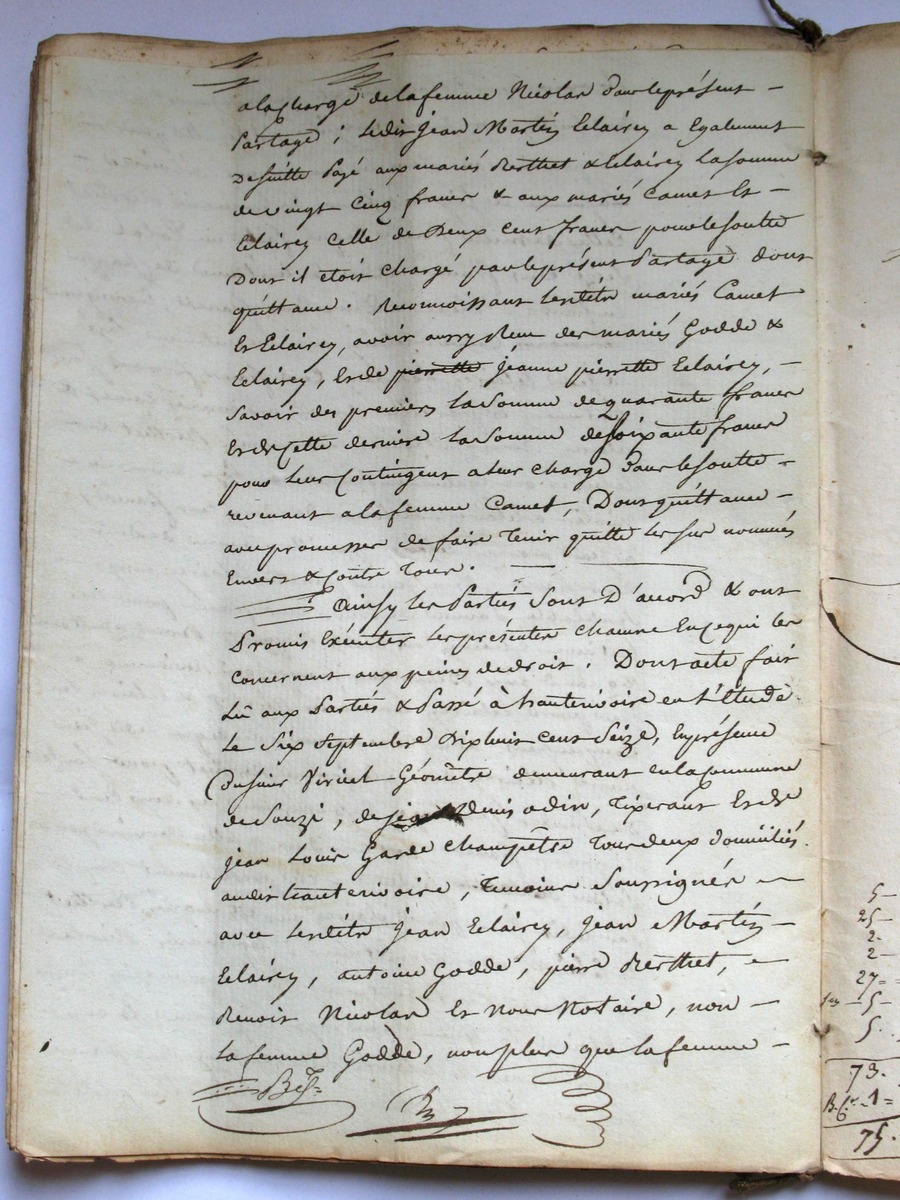 a la charge de la femme Nicolas dans le présent –
Partage ; ledit Jean Martin Eclairey a Egalement
De suitte Payé aux mariés Berthet & Eclairey la somme
de vingt Cinq francs & aux mariés Camet Et –
Eclairey Celle de Deux Cent francs pour le soulte
Dont il étoit chargé par le présent Partage dont
quittance . Reconnoissant lesdits mariés Camet
Et Eclairey, avoir aussy Reçu des mariés Godde &
Eclairey, Et de pierrette Jeanne pierrette Eclairey, –
Savoir des premiers la Somme de quarante francs
Et de Cette dernière la Somme de soixante francs
pour leur Contingent a leur charge dans le soulte –
revenant a la femme Camet, Dont quittance –
avec promesses de faire Tenir quitte les sus nommés
Envers & Contre Tous .
Ainsy les Parties Sont D'accord & ont
Promis Exécuter les présentes chacune En ce qui les
Concernent aux peines de droit . Dont acte fait
Lû aux Parties & Passé à hauterivoire en L'étude
Le Six Septembre Dix huit cent Seize, En présence
Du sieur Viriel Géomêtre demeurant en la Commune
de Souzi, de Denis odin, Tixerant Et de
Jean Louis Garde Champêtre Tous deux domiciliés
audit hauterivoire, Temoins Soussignés –
avec lesdits Jean Eclairey, Jean Martin –
Eclairey, antoine Godde, pierre Berthet, –
Benoit Nicolas Et Nous Notaire, non –
la femme Godde, non plus que la femme –
5 –
25 –
2 .
2 –
27 =
5 –
5 .
73 .
1 =
75 .